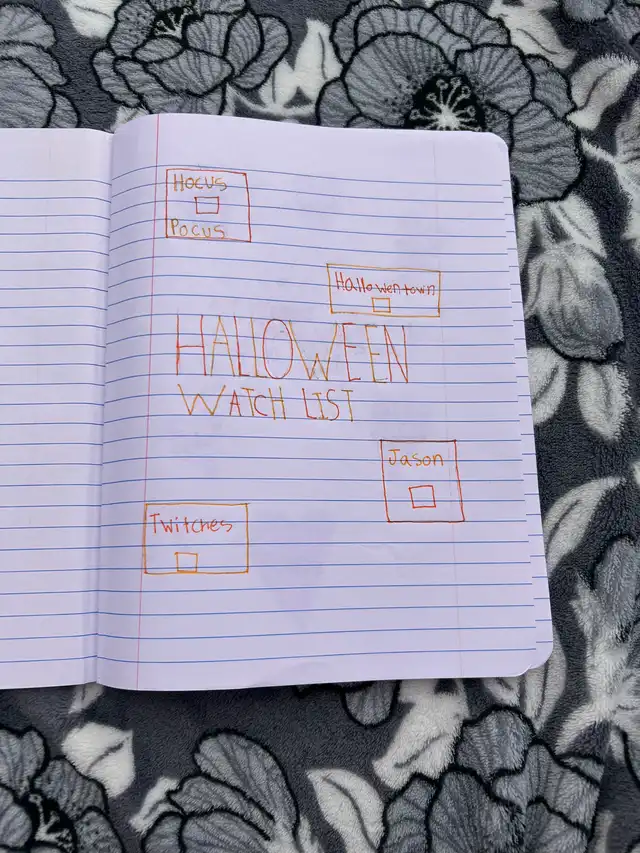 Hocus
Pocus
Hallowentown
HALLOWEEN
WATCH LIST
Jason
Twitches